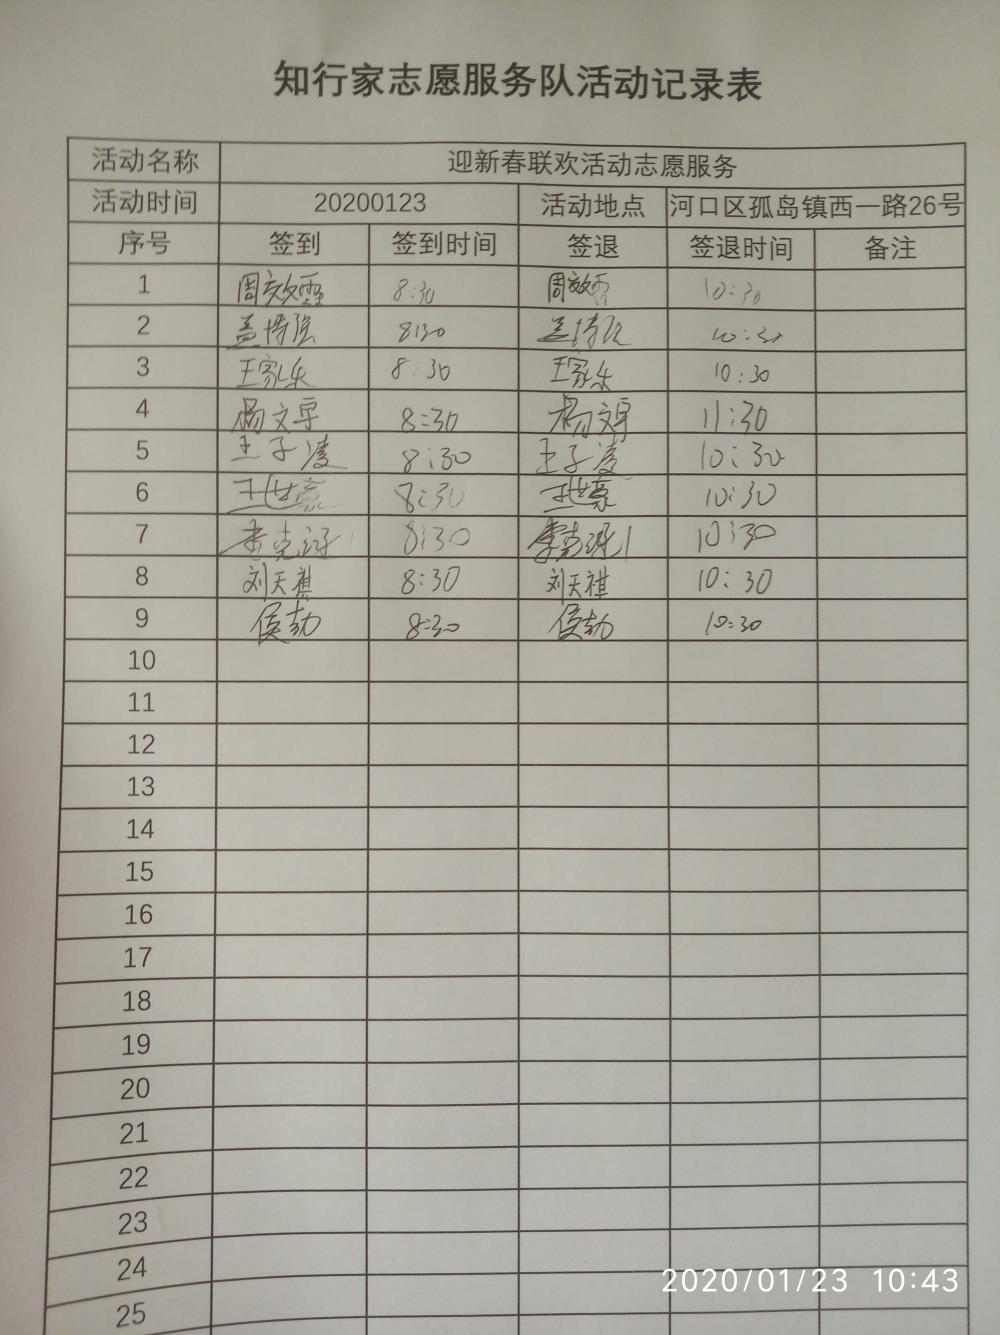 知行家志愿服务队活动记录表
活动名称 迎新春联欢活动志愿服务
活动时间 20200123 活动地点 河口区孤岛镇西一路26号
序号 签到 签到时间 签退 签退时间 备注
1 周效霝 8:30 周效霝 10:30
2 盖博强 8:30 盖博强 10:30
3 王家乐 8:30 王家乐 10:30
4 杨文 8:30 杨文 11:30
5 王子凌 8:30 王子凌 10:30
6 王世豪 8:30 王世豪 10:30
7 8:30 10:30
8 刘天祺 8:30 刘天祺 10:30
9 侯勃 8:30 侯勃 10:30
10
11
12
13
14
15
16
17
18
19
20
21
22
23
24
25
2020/01/23 10:43